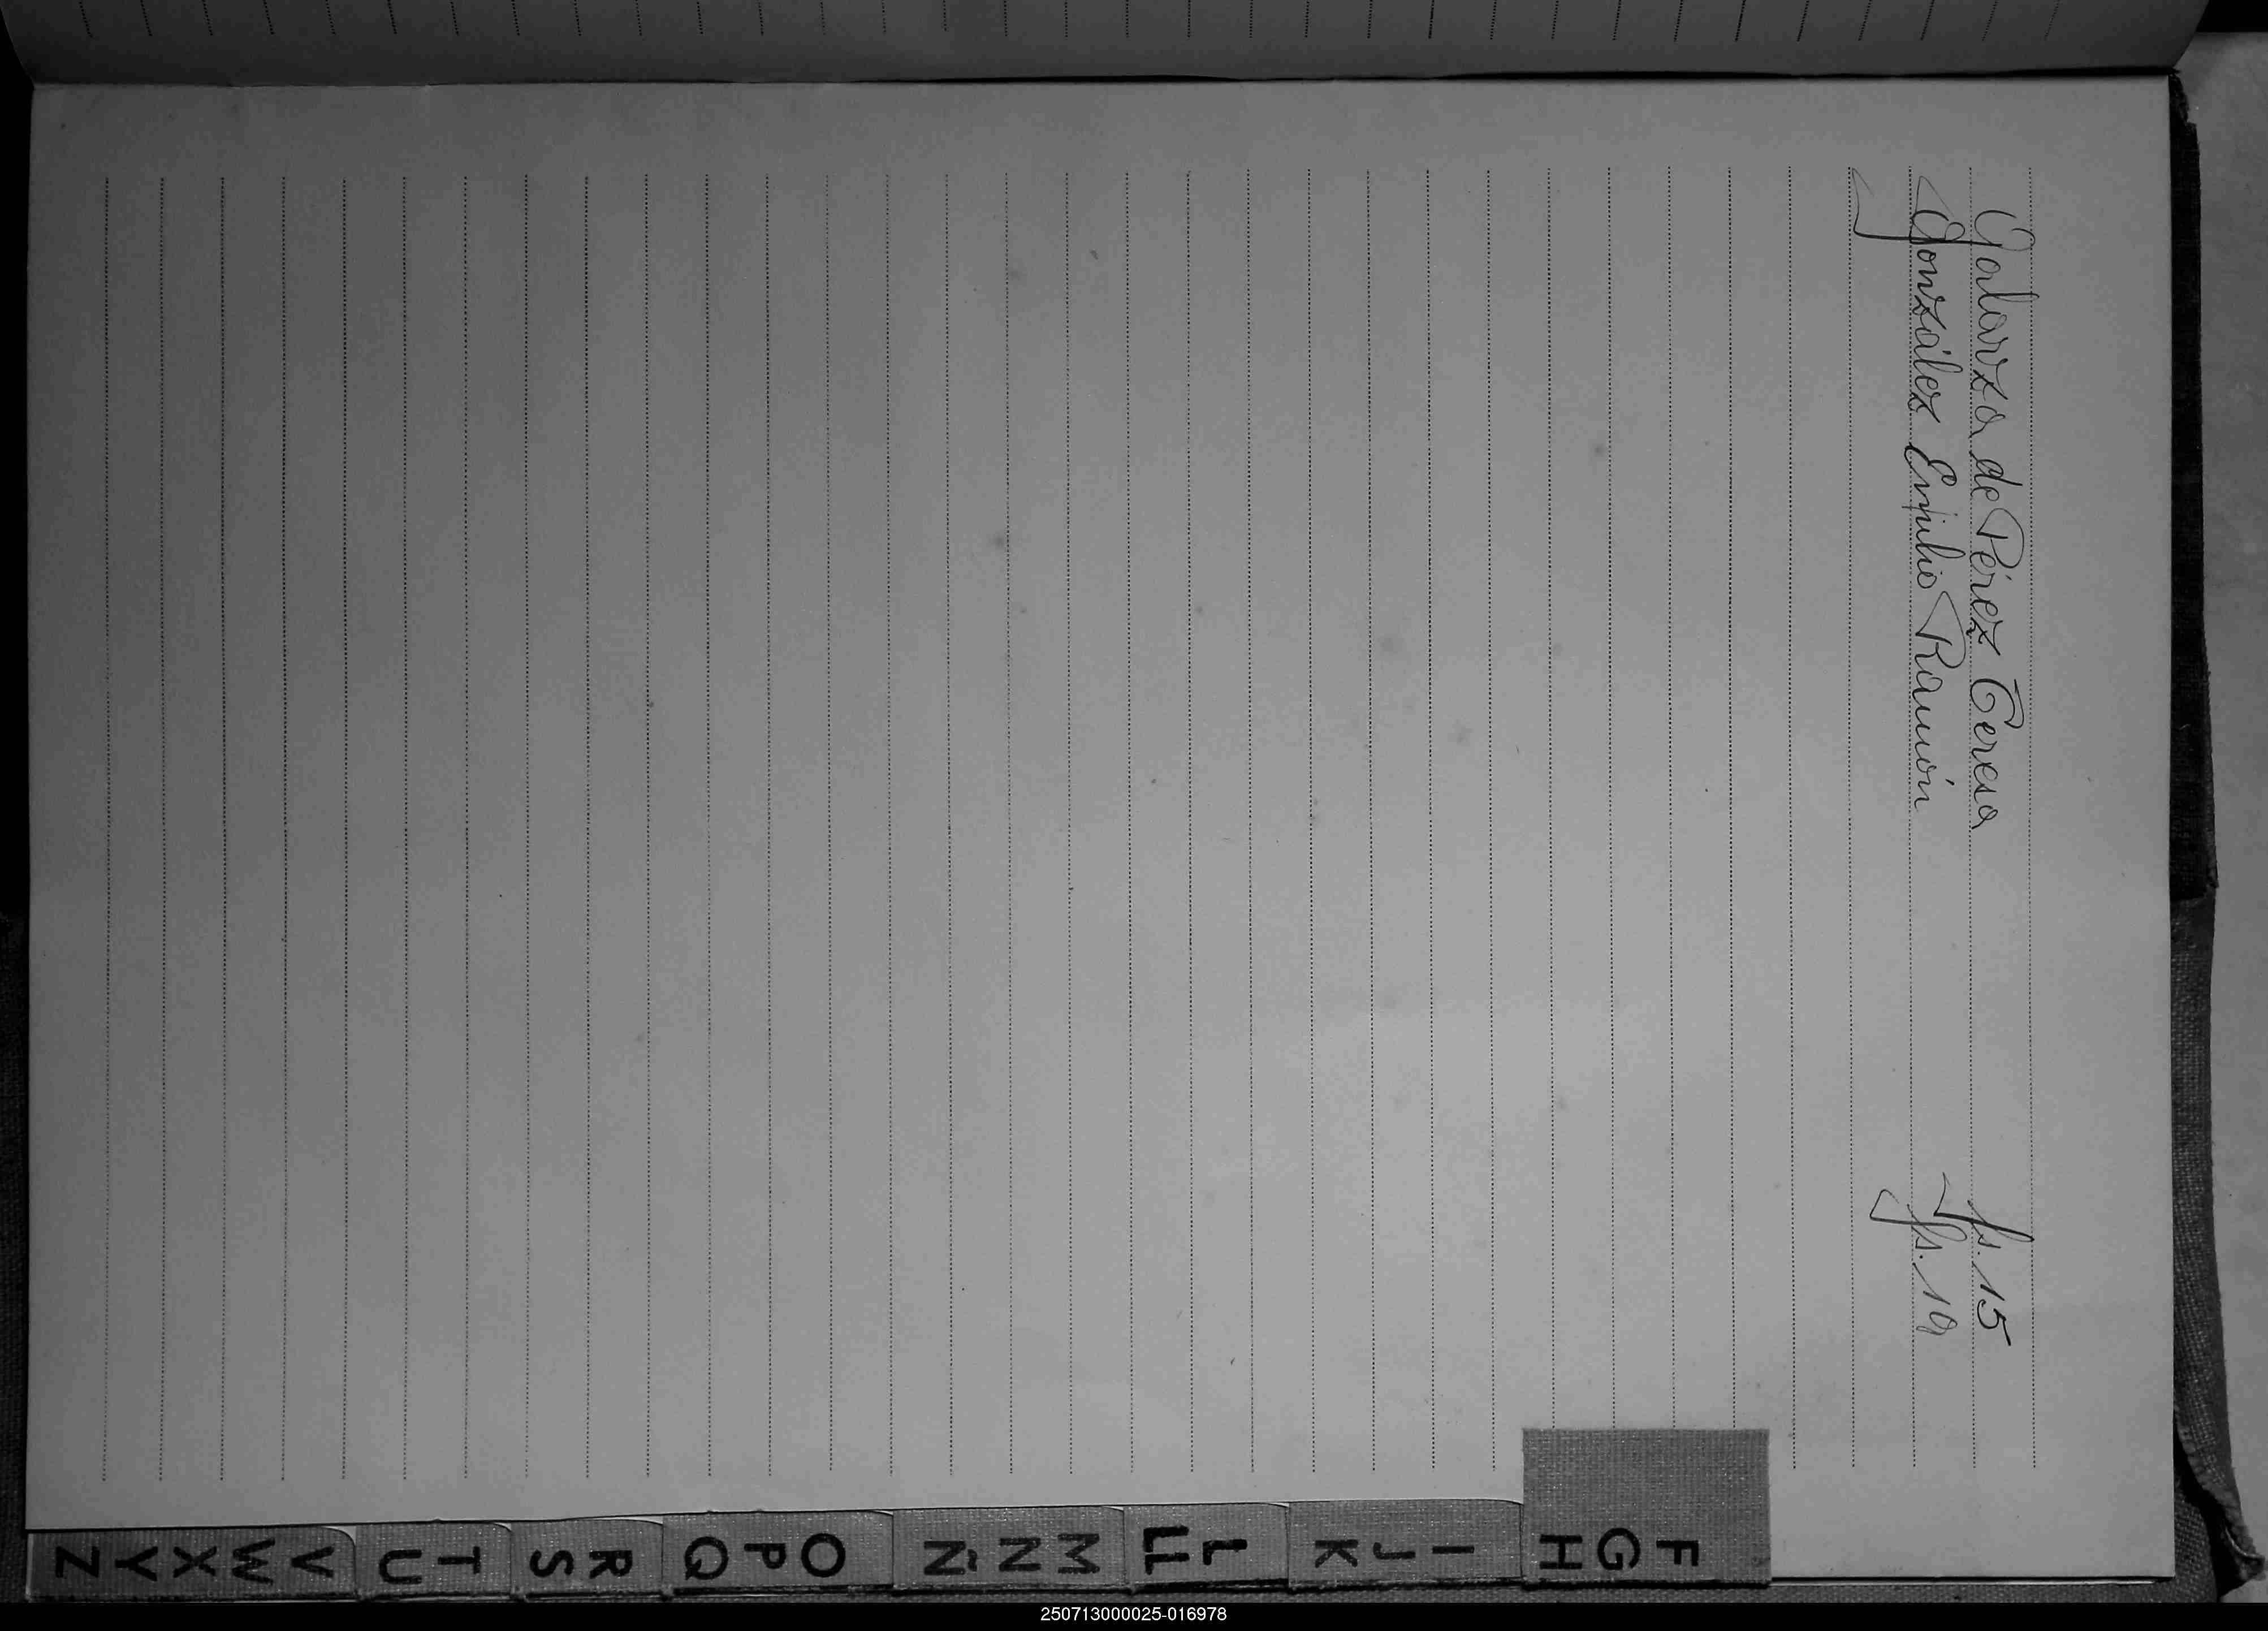 Galarza de Pérez Teresa fs. 15
González Emilio Ramón fs. 19
F G H
I J K
L Ll
M N Ñ
O P Q
R S
T U
V W X Y Z
250713000025-016978